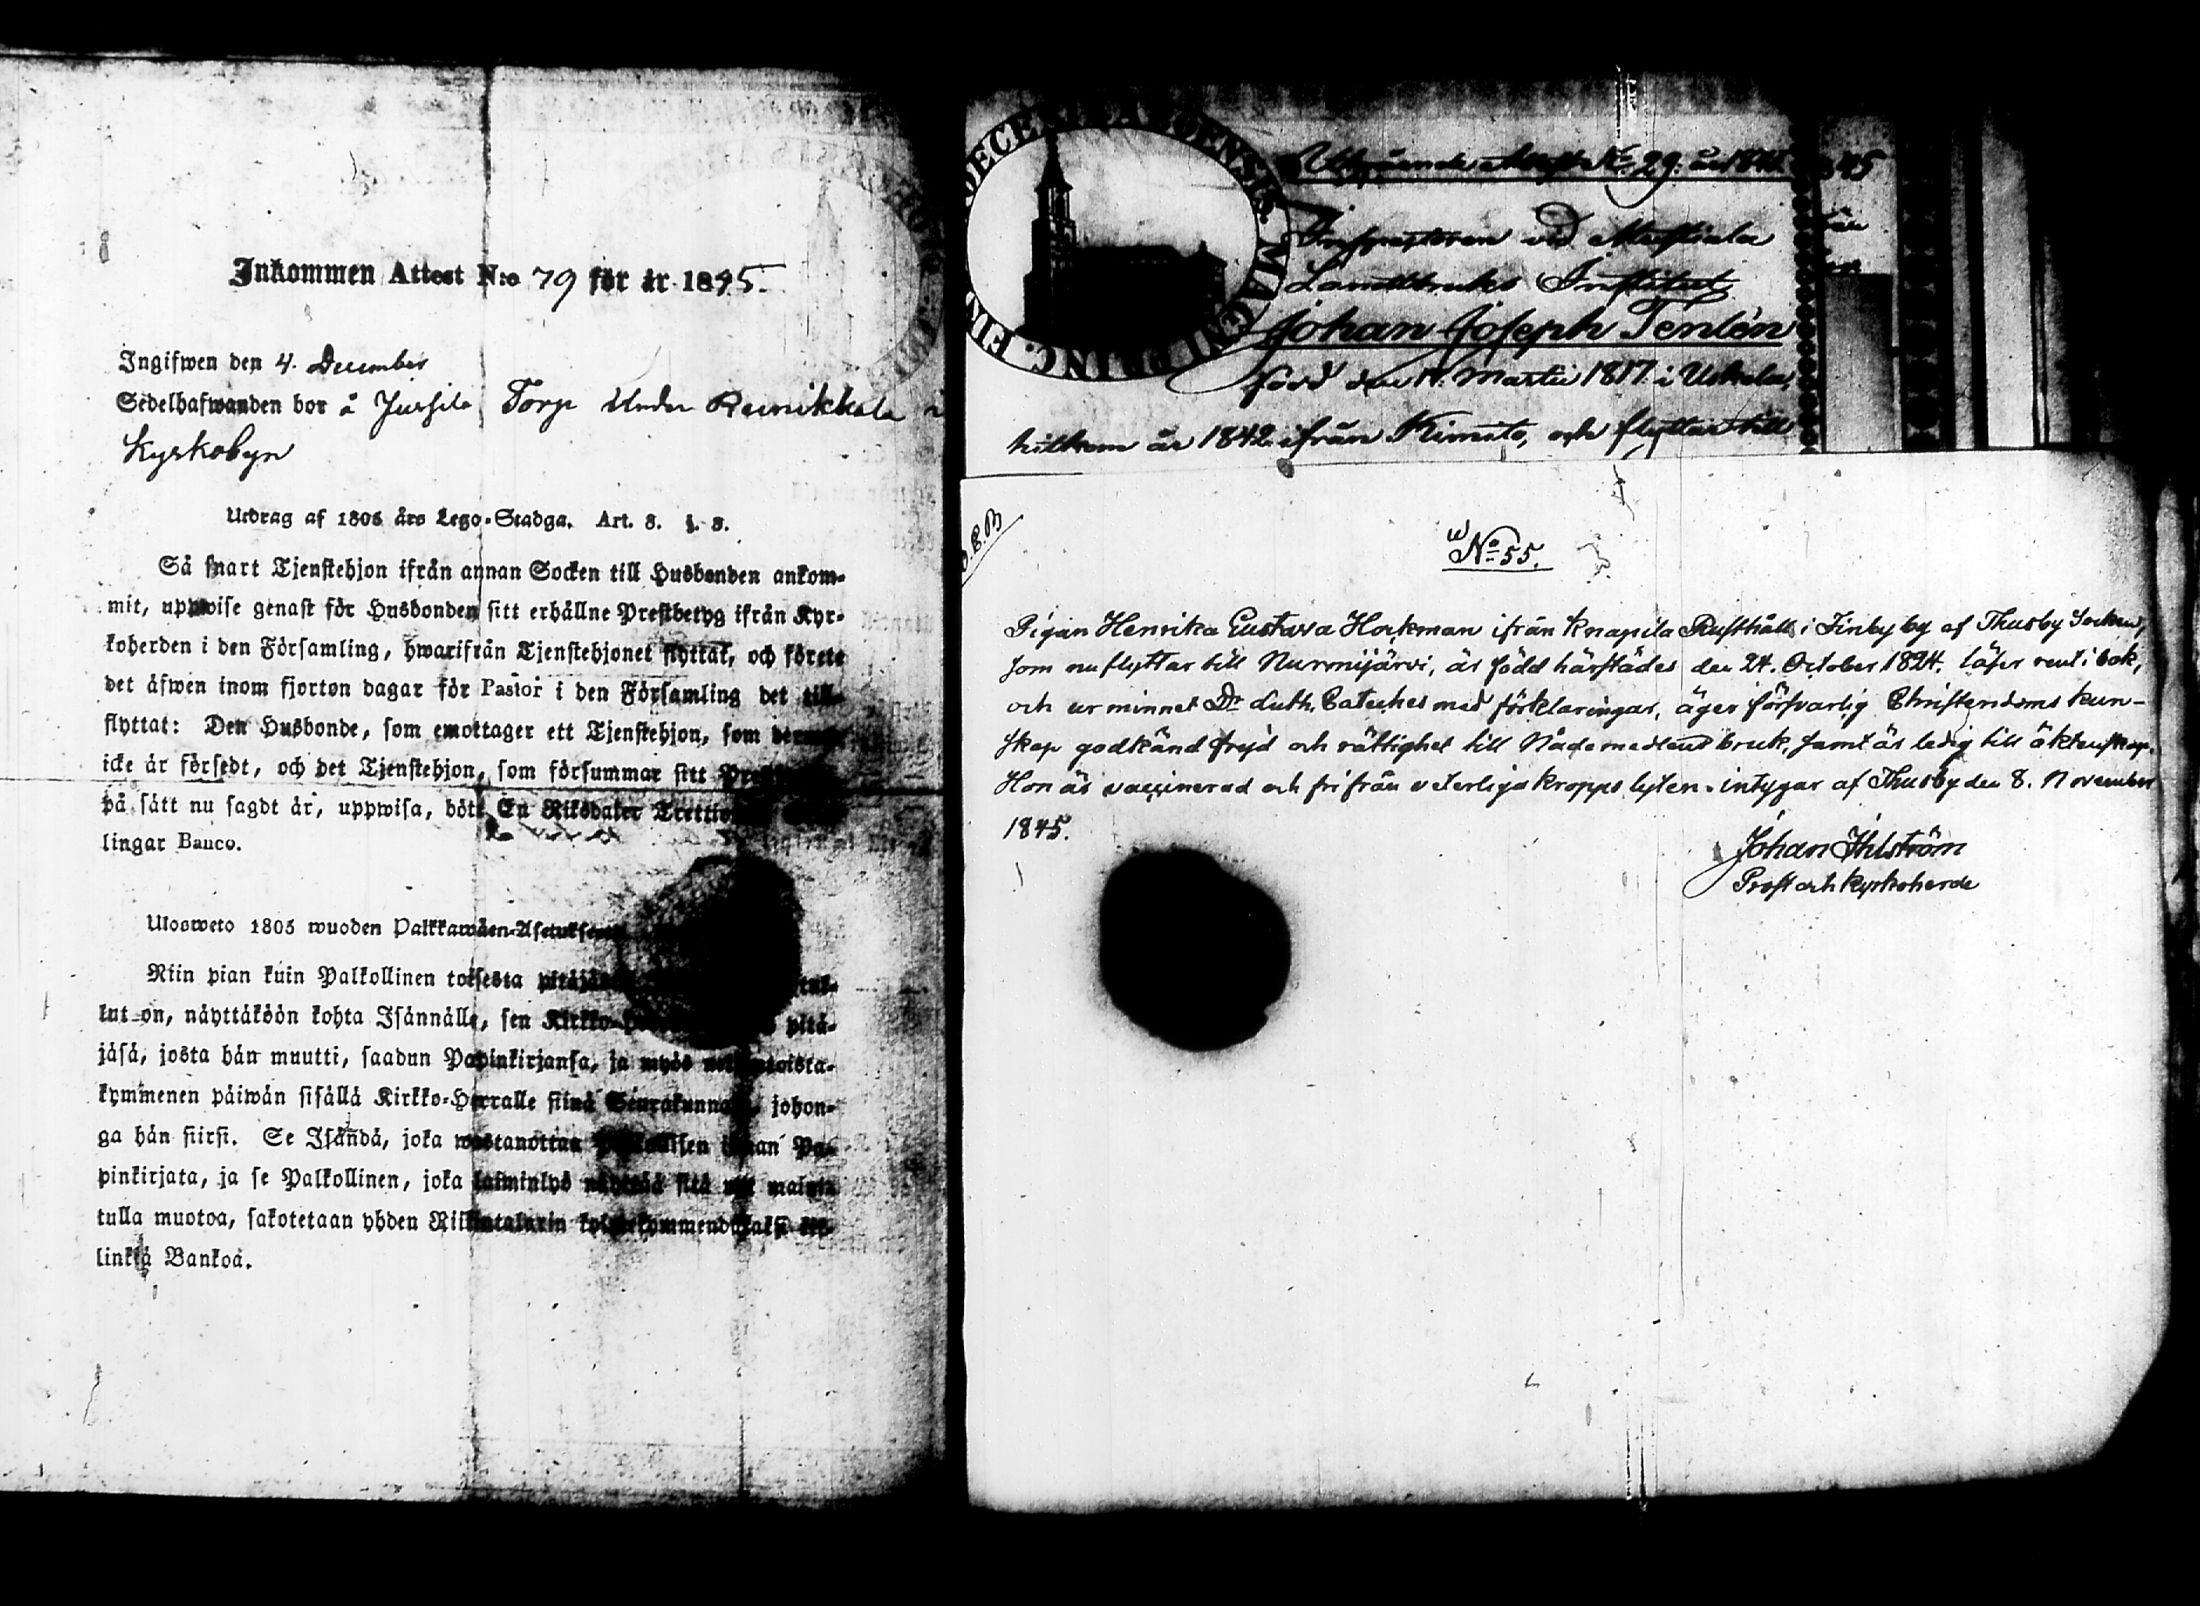 Inkommen Attest N:o 79 för år 1845.
Ingifwen den 4. December
Sedelhafwanden bor å Jussila Torp Under Reinikkala
Kyrkobyn
Utdrag af 1805 års Lego-Stadga. Art. 3. §. 3.
Så snart Tjenstehjon ifrån annan Socken till Husbonden ankom-
mit, uppwise genast för Husbonden sitt erhållne Prestbetyg ifrån Kyr-
koherden i den Församling, hwarifrån Tjenstehjonet flyttat, och förete
det äfwen inom fjorton dagar för Pastor i den Församling det till-
flyttat: Den Husbonde, som emottager ett Tjenstehjon, som
icke är försedt, och det Tjenstehjon, som försummar sitt
på sätt nu sagdt är, uppwisa, böte En Riksdaler Trettio
lingar Banco.
Ulosweto 1805 wuoden Palkkawäen-Asetuksesta
Niin pian kuin Palkollinen toisesta pitäjäs
lut on, näyttäköön kohta Isännälle, sen Kirkko- pitä-
jäsä, josta hän muutti, saadun Papinkirjansa, ja myös neljäntoista-
kymmenen päiwän sisällä Kirkko-Herralle siinä Seurakunnas, johon-
ga hän siirsi. Se Isändä, joka wastanottaa Palkollisen ilman Pa-
pinkirjata, ja se Palkollinen, joka laiminlyö näyttää sitä
tulla muotoa, sakotetaan yhden Riikintalarin
linkiä Bankoa.
DIOECESIS ABOENSIS. MAGNI PRINC. FIN
Utgående Attest No. 29. år 1845
Inspectoren vid Mustiala
Landtbruks Institut
Johan Joseph Tenlén
född den 11. Martii 1817 i Uskela,
hitkom år 1842 ifrån Kimito, och flyttar till
No 55.
Pigan Henrika Gustava Hockman ifrån Knapila Rusthåll i Finby by af Thusby Socken,
som nu flyttar till Nurmijärvi, är född härstädes den 24. October 1824. läser rent i bok,
och ur minnet Dr Luth. Cateches med förklaringar, äger försvarlig Christendoms kun-
skap godkänd frejd och rättighet till Nådemedlens bruk, samt är ledig till äktenskap.
Hon är vaccinerad och fri från veterliga kropps lyten. intygar af Thusby den 8. November
1845.
Johan Ihlström
Prost och Kyrkoherde